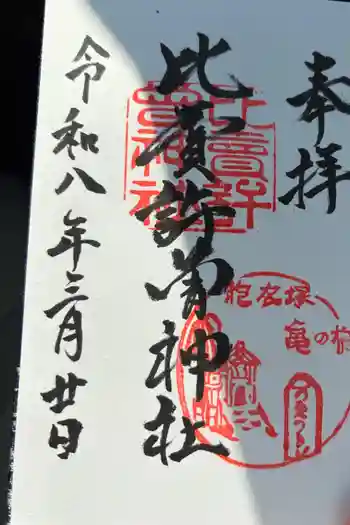 奉拝
比賣許曽神社
令和八年三月廿日
比賣許曽神社
胞衣塚
亀の